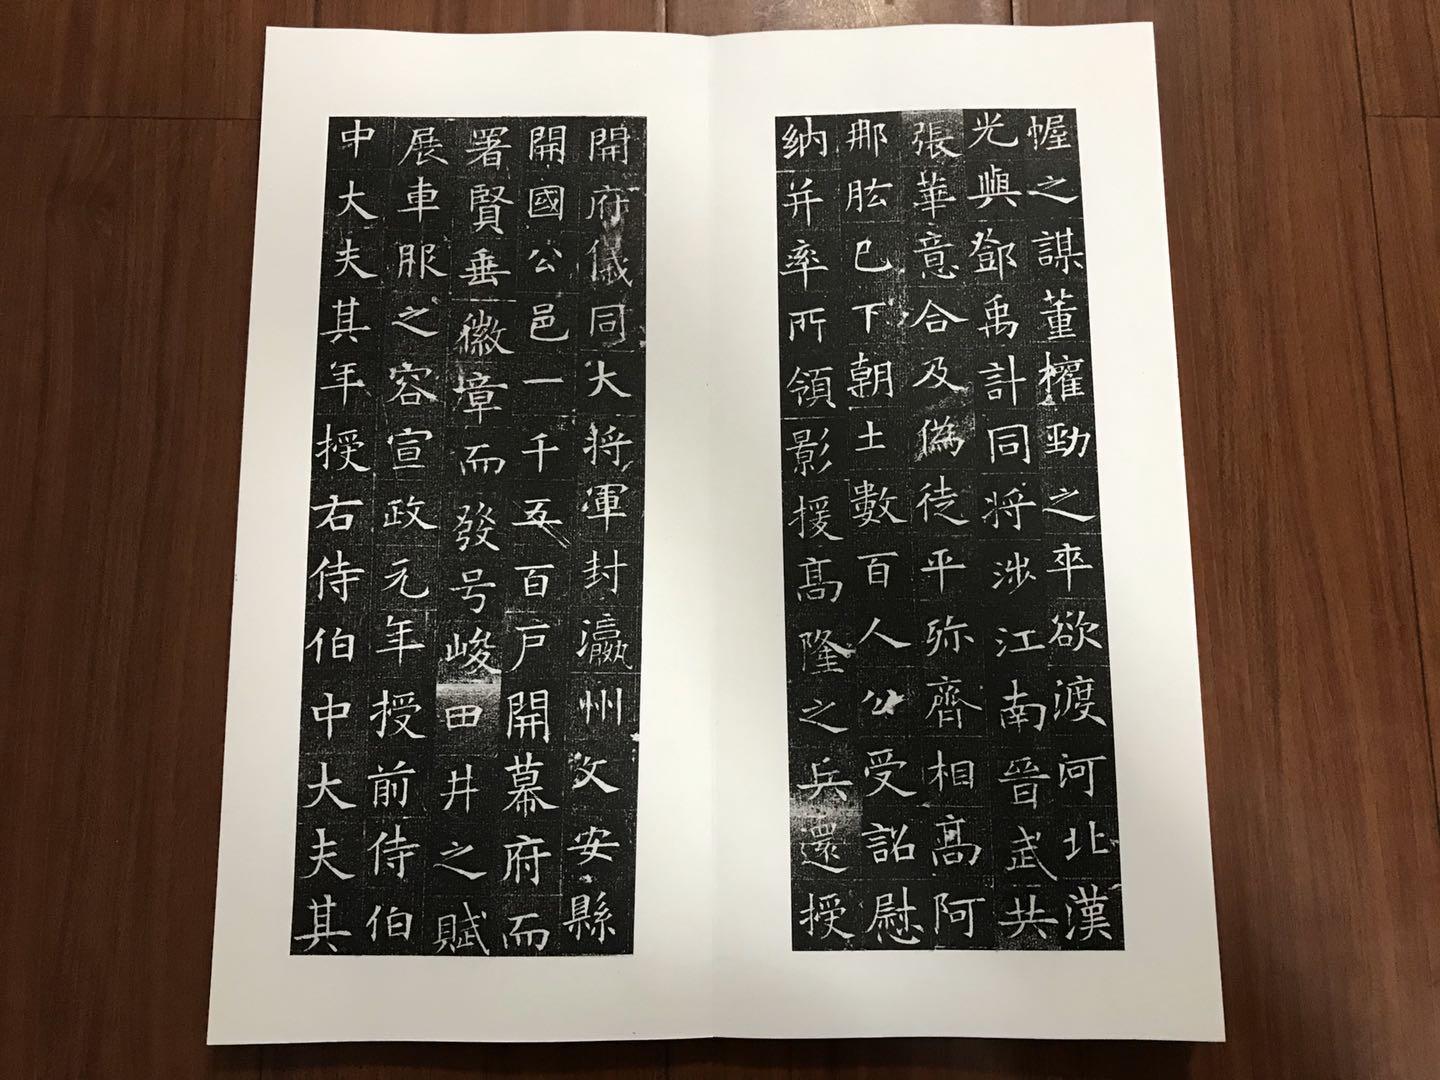 幄之謀董權勁之卒欲渡河北漢
光與鄧禹計同将涉江南晉武共
張華意合及偽徒平弥齊相高阿
那肱已下朝士數百人公受詔慰
納并率所領影援高隆之兵還授
開府儀同大将軍封瀛州文安縣
開國公邑一千五百戸開幕府而
署賢垂徽章而發号峻田井之賦
展車服之容宣政元年授前侍伯
中大夫其年授右侍伯中大夫其